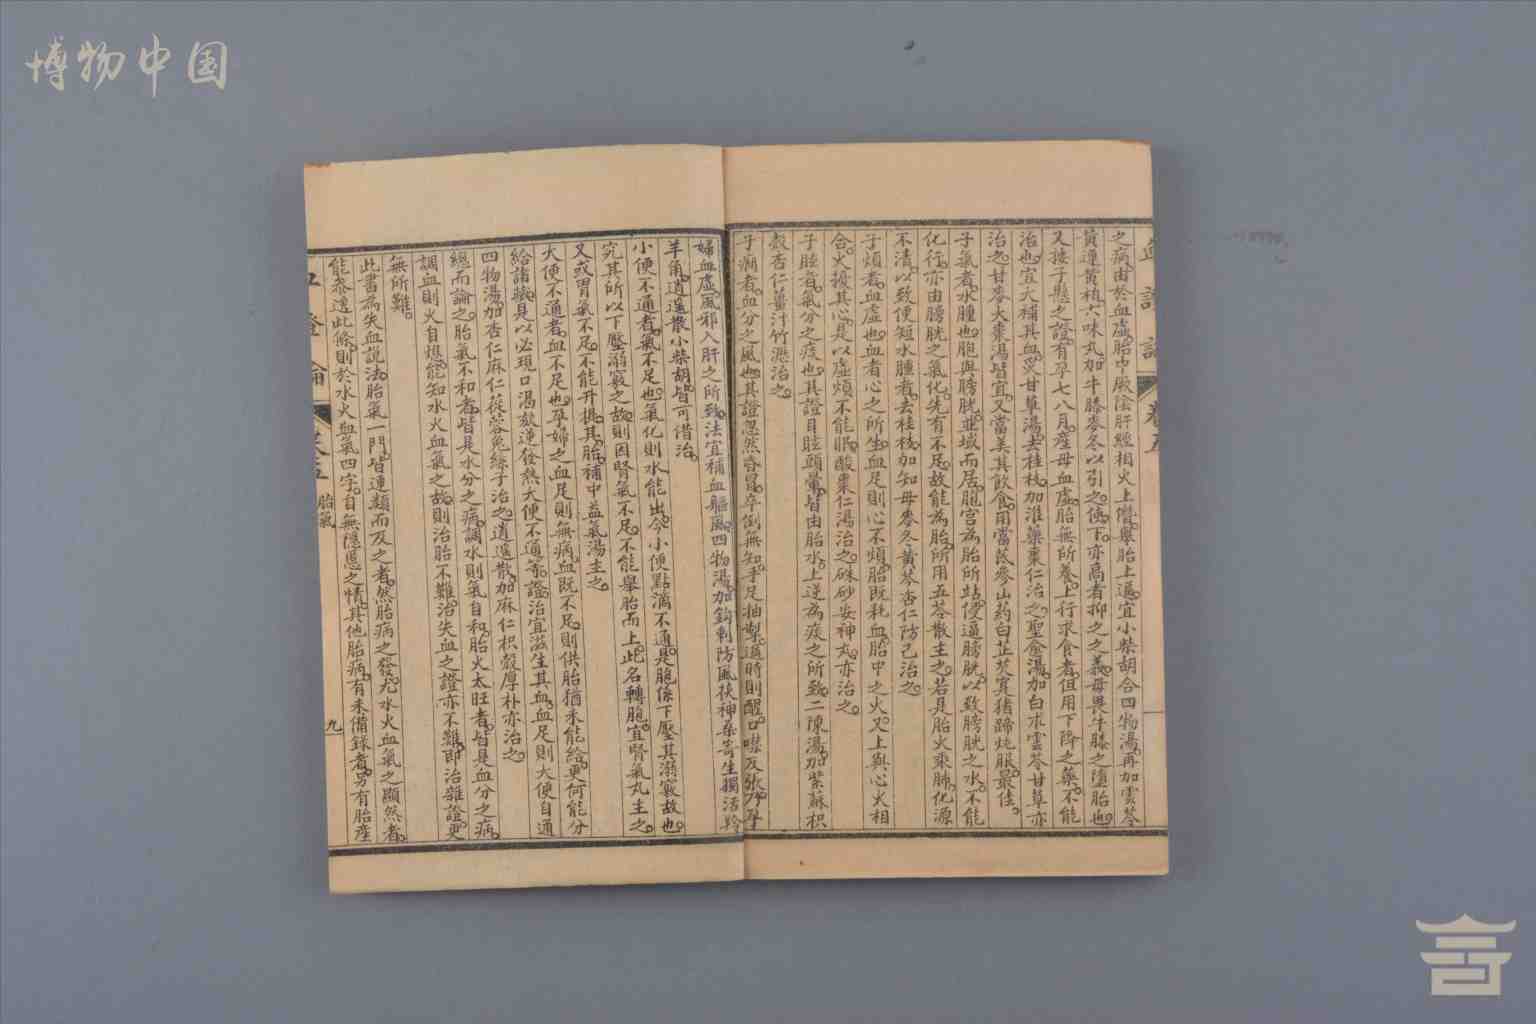 博物中国
之病由於血虛胎中厥陰肝經相火上僭舉胎上逼宜小柴胡合四物湯再加雲苓
黃連黃柏六味丸加牛膝麥冬以引之使下亦高者抑之之義毋畏牛膝之墮胎也
又接子懸之證有孕七八月產母血虛胎無所養上行求食者但用下降之藥不能
治也宜大補其血炙甘草湯去桂枝加淮藥棗仁治之聖愈湯加白朮雲苓甘草亦
治之甘麥大棗湯皆宜又當美其飲食用當民參山药白芷芡實猪蹄炖服最佳
子氣者水腫也胞與膀胱並域而居胞宮為胎所占侵逼膀胱以致膀胱之水不能
化行亦由膀胱之氣化先有不足故能為胎所用五苓散主之若是胎火乘肺化源
不清以致便短水腫者去桂枝加知母麥冬黃芩杏仁防己治之
子煩者血虛也血者心之所生血足則心不煩胎既耗血胎中之火又上與心火相
合火擾其心是以虛煩不能眠酸棗仁湯治之硃砂安神丸亦治之
子眩者氣分之痰也其證目眩頭暈皆由胎水上逆為痰之所致二陳湯加紫蘇枳
殼杏仁薑汁竹瀝治之
子癇者血分之風也其證忽然昏冒卒倒無知手足抽掣過時則醒口噤反張乃孕
婦血虛風邪入肝之所致法宜補血驅風四物湯加鈎藤防風茯神桑寄生獨活羚
羊角逍遥散小柴胡皆可借治
小便不通者氣不足也氣化則水能出今小便點滴不通是胞係下壓其溺竅故也
究其所以下壓溺竅之故則因腎氣不足不能舉胎而上此名轉胞宜腎氣丸主之
又或胃氣不足不能升提其胎補中益氣湯主之
大便不通者血不足也孕婦之血足則無病血既不足則供胎猶未能給更何能分
給諸臟是以必現口渴欬逆發熱大便不通等證治宜滋生其血血足則大便自通
四物湯加杏仁麻仁蓯蓉兔絲子治之逍遥散加麻仁枳殼厚朴亦治之
總而論之胎氣不和者皆是水分之病調水則氣自和胎火太旺者皆是血分之病
調血則火自熄能知水火血氣之故則治胎不難治失血之證亦不難即治雜證更
無所難
此書為失血說法胎氣一門皆連類而及之者然胎病之發尤水火血氣之顯然者
能參透此條則於水火血氣四字自無隱慝之情其他胎病有未備錄者另有胎產
胎氣
九